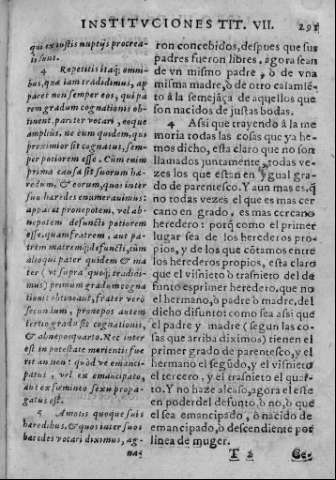 INSTITVCIONES TIT. VII. 291
qui ex iustis nuptijs procrea-
ti sunt.
4 Repetitis itaq; omni-
bus, quæ iam tradidimus, ap
paret non semper eos, qui pa
rem gradum cognationis ob
tinent, pariter vocari, eoque
amplius, ne eum quidem, qui
proximior sit cognatus, sem-
per potiorem esse. Cùm enim
prima causa sit suorum hæ-
redum, & eorum, quos inter
suos hæredes enumerauimus:
apparet pronepotem, vel ab-
nepotem defuncti potiorem
esse, quàm fratrem aut pa-
trem matremq; defuncti, cùm
alioqui pater quidem & ma
ter (vt supra quoq; tradidi-
mus) primum gradum cogna
tionis obtineant, frater verò
secundum, pronepos autem
tertio gradu sit cognationis,
& abnepos quarto. Nec inter
est in potestate morientis fue
rit an non: quòd vel emanci-
patus, vel ex emancipato,
aut ex fœmineo sexu propa-
gatus est.
5 Amotis quoque suis
hæredibus, & quos inter suos
hæredes vocari diximus, ag-
na-
ron concebidos, despues que sus
padres fueron libres, agora sean
de vn mismo padre, ò de vna
misma madre, ò de otro casamie-
to à la semejãça de aquellos que
son nacidos de justas bodas.
4 Assi que trayendo à la me
moria todas las cosas que ya he-
mos dicho, esta claro que no son
llamados juntamente, todas ve-
zes los que estan en ygual gra-
do de parentesco. Y aun mas es, q̃
no todas vezes el que es mas cer
cano en grado, es mas cercano
heredero: porq̃ como el primer
lugar sea de los herederos pro-
pios, y de los que cõtamos entre
los herederos propios, esta claro
que el visnieto ò trasnieto del de
funto es primer heredero, que no
el hermano, ò padre ò madre, del
dicho difunto: como sea assi que
el padre y madre (segun las co-
sas que arriba diximos) tienen el
primer grado de parentesco, y el
hermano el segũdo, y el visnieto
el tercero, y el trasnieto el quar-
to. Y no haze al caso, agora si este
en poder del defunto, ò no, ò que
el sea emancipado, ò nacido de
emancipado, ò descendiente por
linea de muger.
T 2 Ge-